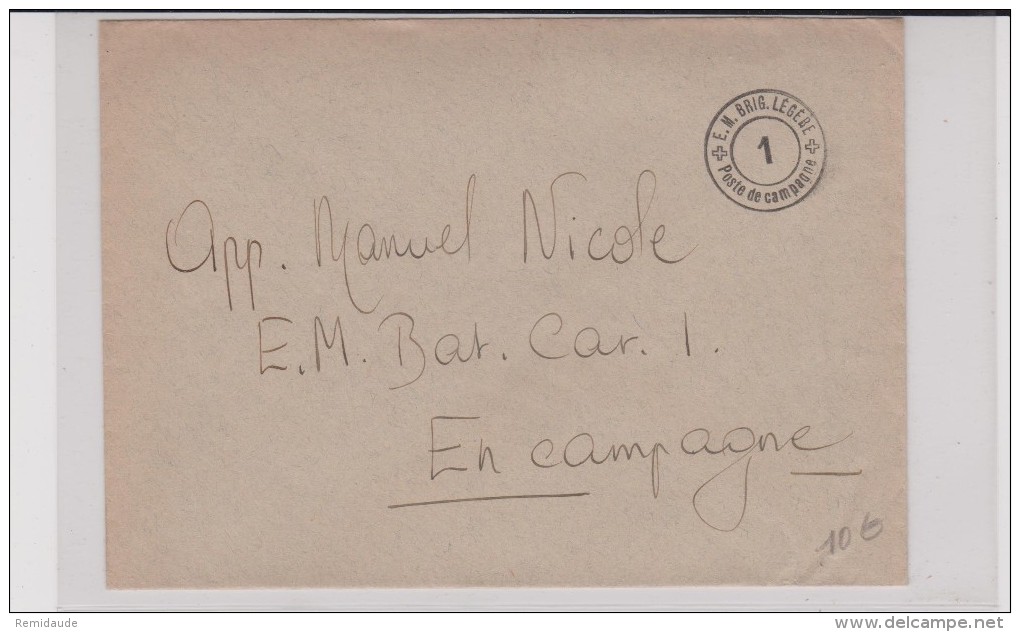 E.M. BRIG. LÉGÈRE
1
Poste de campagne
App. Manuel Nicole
E.M. Bat. Car. 1.
En campagne
10 €
Remidaude
www.delcampe.net